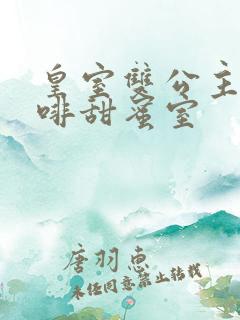 皇室雙公主
啡甜蜜室
唐羽恵
未経同意禁止转载